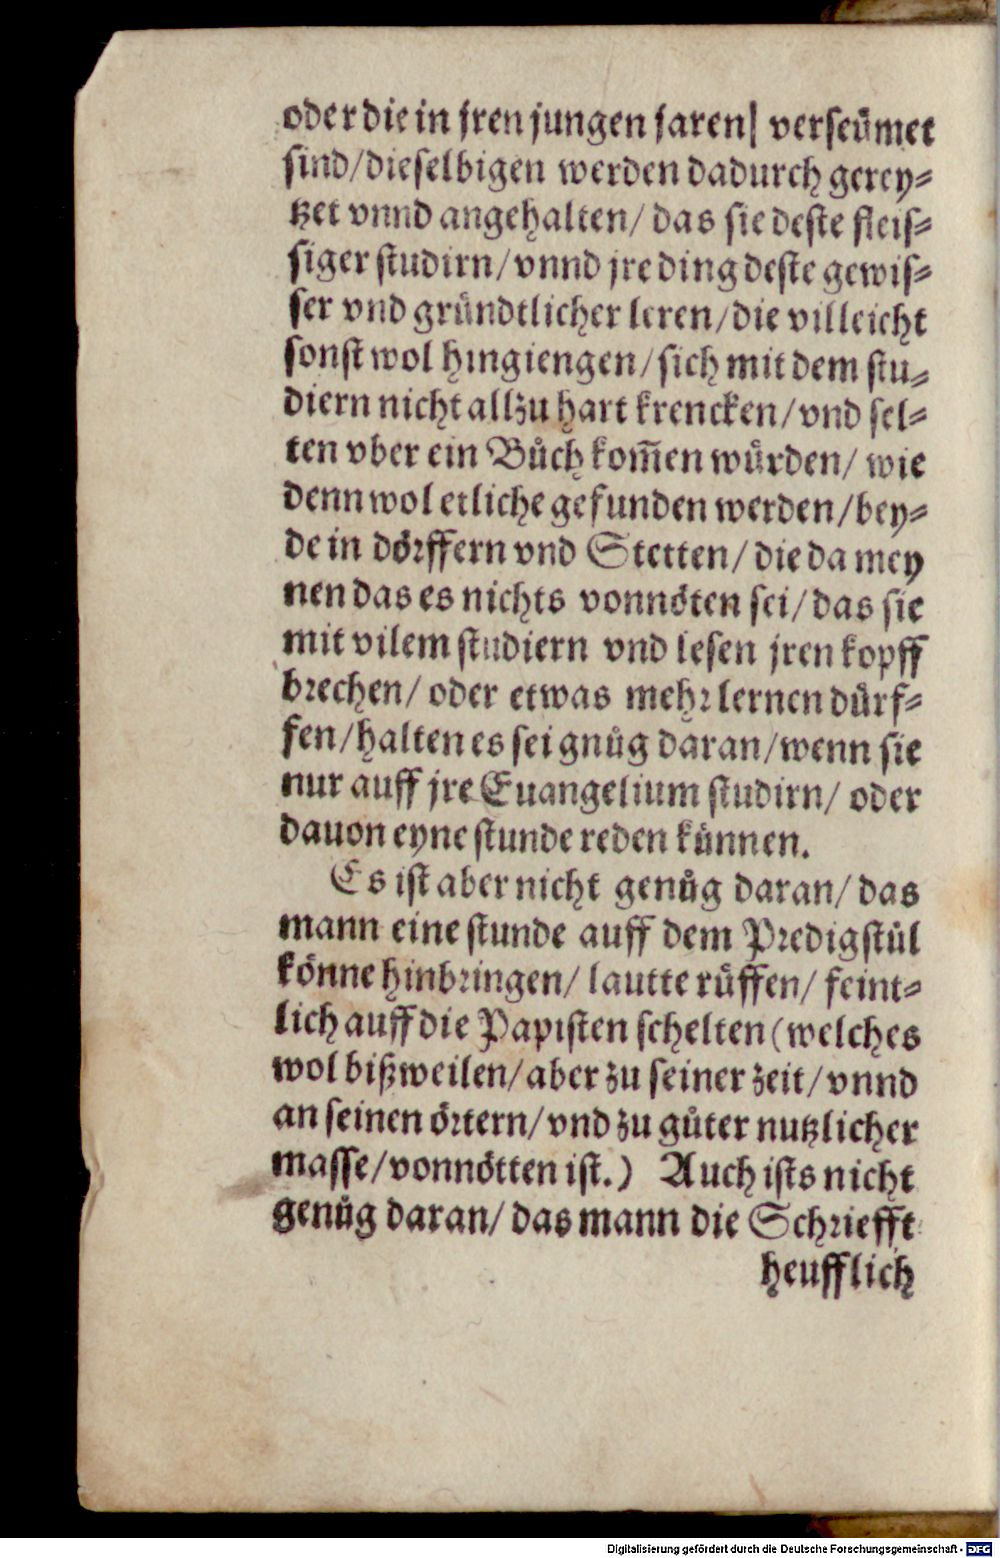 oder die in jren jungen jaren/ verseůmet
sind/dieselbigen werden dadurch gerey-
tzet vnnd angehalten/ das sie deste fleis-
siger studirn/vnnd jre ding deste gewis-
ser vnd gründtlicher leren/die villeicht
sonst wol hingiengen/sich mit dem stu-
diern nicht allzu hart krencken/vnd sel-
ten vber ein Bůch kom̃en wůrden/ wie
denn wol etliche gefunden werden/bey-
de in dörffern vnd Stetten/ die da mey
nen das es nichts vonnöten sei/das sie
mit vilem studiern vnd lesen jren kopff
brechen/ oder etwas mehr lernen důrf-
fen/halten es sei gnůg daran/wenn sie
nur auff jre Euangelium studirn/ oder
dauon eyne stunde reden künnen.
Es ist aber nicht genůg daran/ das
mann eine stunde auff dem Predigstůl
könne hinbringen/ lautte růffen/ feint-
lich auff die Papisten schelten (welches
wol bißweilen/aber zu seiner zeit/vnnd
an seinen örtern/vnd zu gůter nutzlicher
masse/vonnötten ist.) Auch ists nicht
genůg daran/ das mann die Schriefft
heufflich
Digitalisierung gefördert durch die Deutsche Forschungsgemeinschaft - DFG